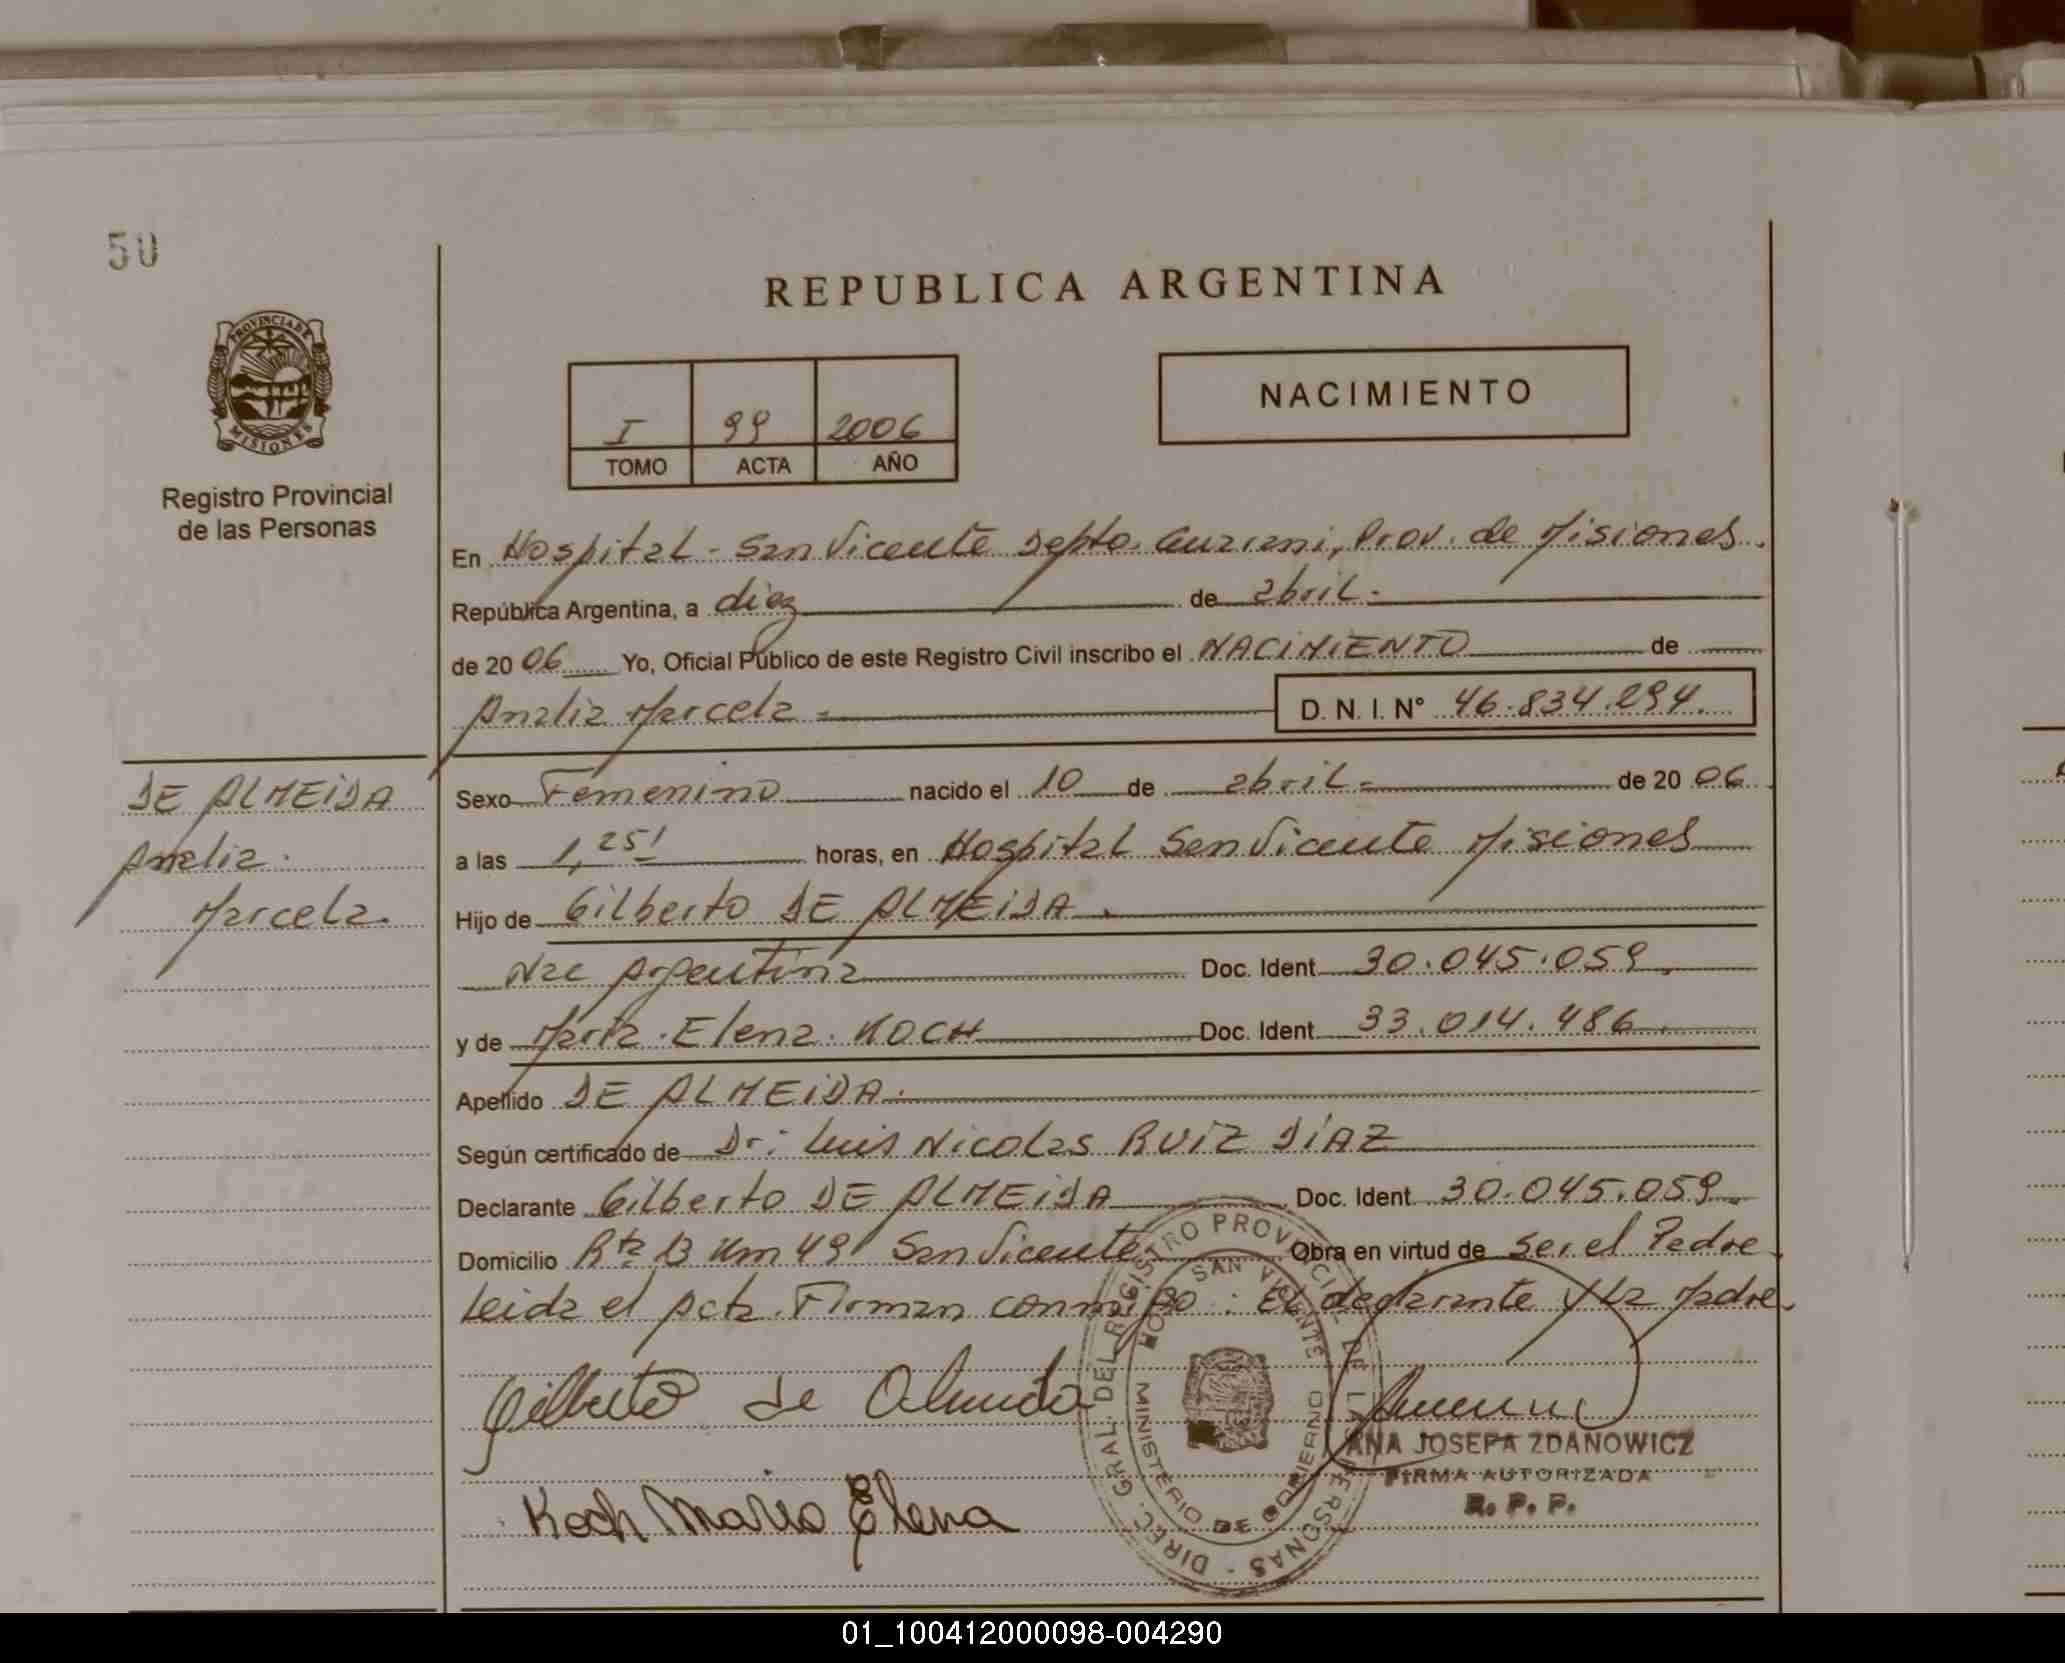 50
REPUBLICA ARGENTINA
PROVINCIA DE
MISIONES
Registro Provincial
de las Personas
I 99 2006
TOMO ACTA AÑO
NACIMIENTO
En Hospital - San Vicente Depto. Guarani, Prov. de Misiones.
República Argentina, a diez de abril.
de 20 06 Yo, Oficial Público de este Registro Civil inscribo el NACIMIENTO de
Analia Marcela D. N. I. N° 46.834.294.
DE ALMEIDA
Analia.
Marcela.
Sexo Femenino nacido el 10 de abril de 20 06
a las 1,25' horas, en Hospital San Vicente Misiones
Hijo de Gilberto DE ALMEIDA.
Nac Argentina Doc. Ident 30.045.059.
y de Maria. Elena. KOCH Doc. Ident 33.014.486.
Apellido DE ALMEIDA.
Según certificado de Dr: Luis Nicolas RUIZ DIAZ
Declarante Gilberto DE ALMEIDA Doc. Ident 30.045.059.
Domicilio Rta 13 Km 49 San Vicente Obra en virtud de ser el Padre
Leida el Acta. Firman conmigo: El declarante y la Madre.
Gilberto de Almeida
Koch Maria Elena
DIREC. GRAL. DEL REGISTRO PROVINCIAL DE LAS PERSONAS
HOSP. SAN VICENTE
MINISTERIO DE GOBIERNO
ANA JOSEFA ZDANOWICZ
FIRMA AUTORIZADA
R. P. P.
01_100412000098-004290